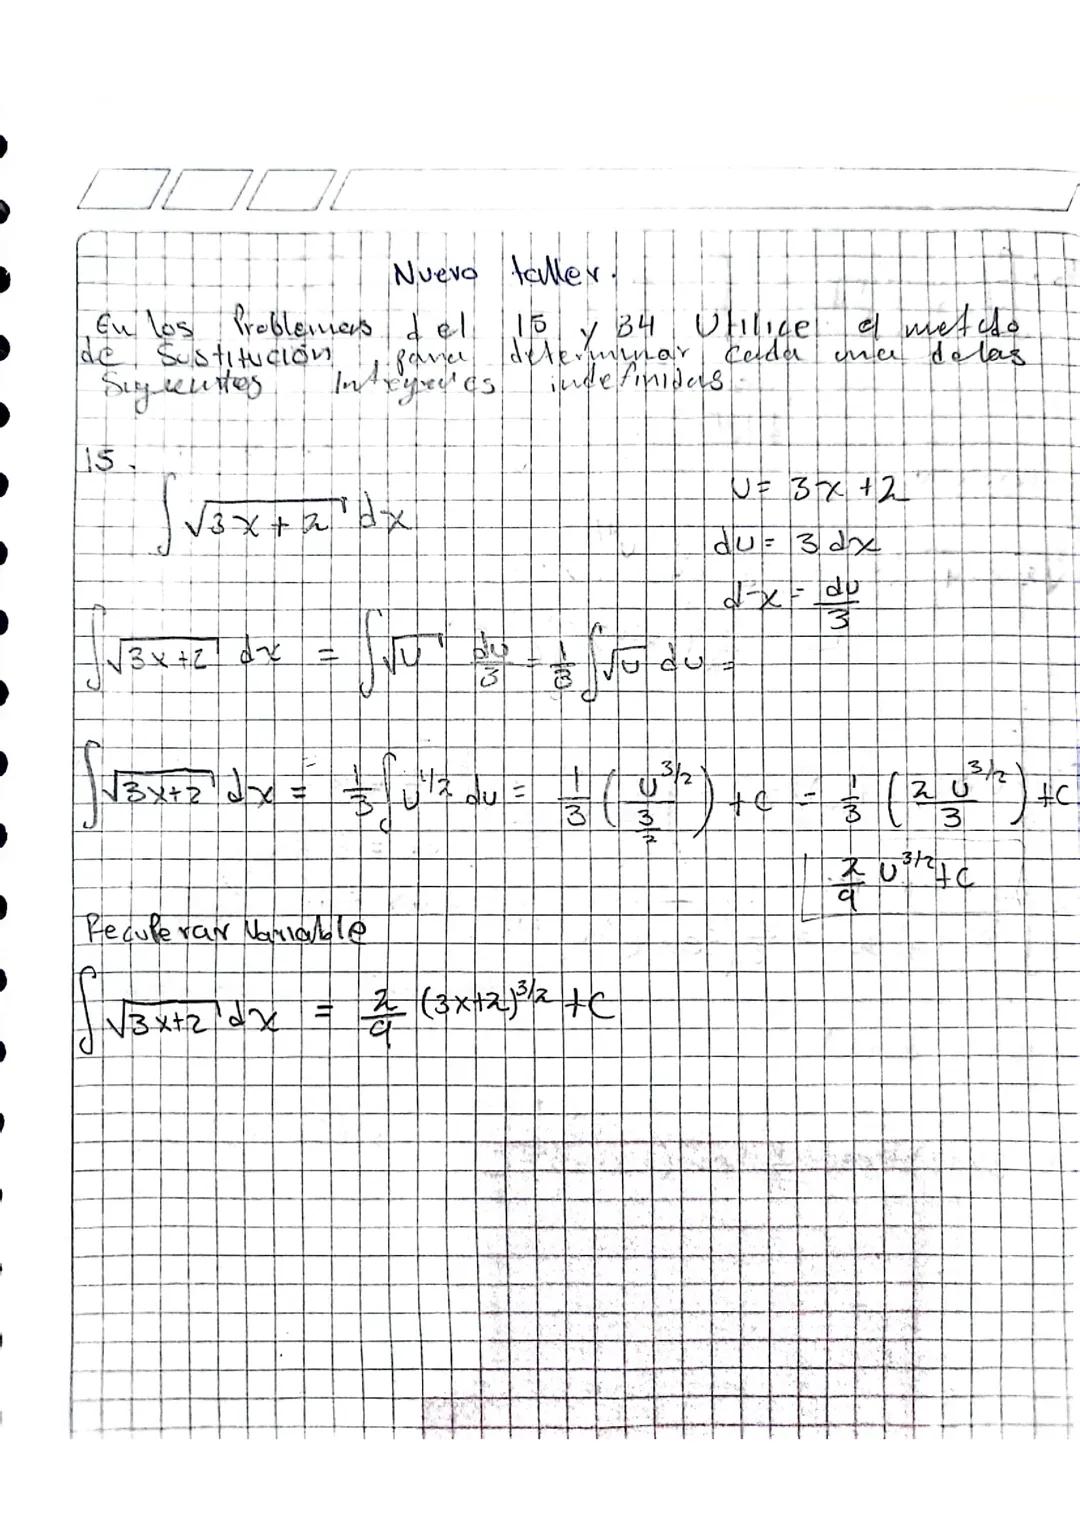 Nuevo taller.
En los Problemas del 15 y 34 Utilice el metodo
de Sustitución, para determinar cada una de las
Siguientes Integrales indefinidas
15.
∫√(3x+2) dx
U = 3x+2
du = 3dx
dx = du/3
∫√(3x+2) dx = ∫√U du/3 = 1/3 ∫√U du =
∫√(3x+2) dx = 1/3 ∫U^(1/2) du = 1/3 (U^(3/2)/(3/2)) + C = 1/3 (2U^(3/2)/3) + C
2/9 U^(3/2) + C
Recuperar Variable
∫√(3x+2) dx = 2/9 (3x+2)^(3/2) + C